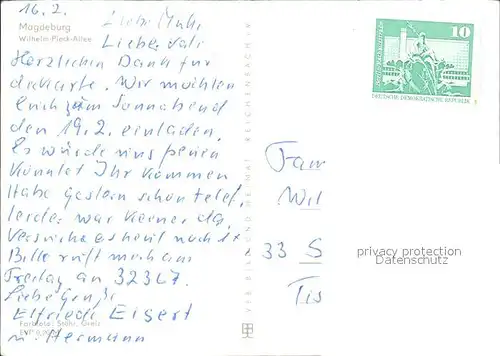 16.2.
Magdeburg
Wilhelm-Pieck-Allee
Liebe Mutti
Lieber Vati
Herzlichen Dank für
die Karte. Wir möchten
Euch zum Sonnabend
den 19.2. einladen.
Es würde uns freuen
könntet Ihr kommen
Habe gestern schon telef.
leider war keiner da,
Versuche es heut noch
Bitte ruft mich am
Freitag an 32367.
Liebe Grüße
Elfriede Eisert
u. Hermann
Farbfoto: Stöhr, Greiz
VEB BILD UND HEIMAT REICHENBACH i.V.
10
DEUTSCHE DEMOKRATISCHE REPUBLIK
Fam
Wil
33 S
Tis
privacy protection
Datenschutz